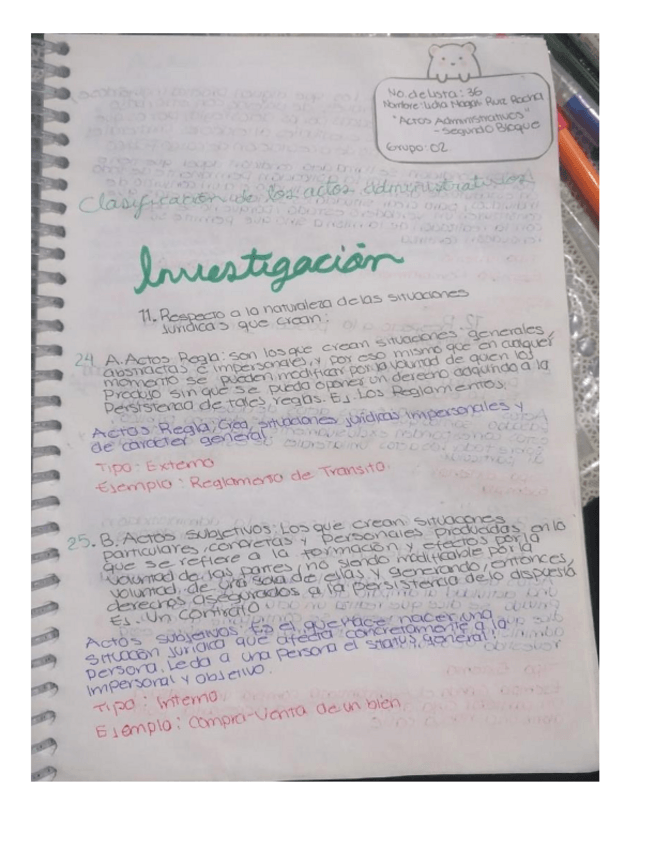 No. de lista: 36
Nombre: Lidia Magali Ruiz Rocha
"Actos Administrativos"
- Segundo Bloque
Grupo: 02
Clasificación de los actos administrativos
Investigación
11. Respecto a la naturaleza de las situaciones
jurídicas que crean:
24. A. Actos Regla: son los que crean situaciones generales,
abstractas e impersonales, y por eso mismo que en cualquier
momento se pueden modificar por la voluntad de quien los
produjo sin que se pueda oponer un derecho adquirido a la
persistencia de tales reglas. Ej. Los Reglamentos.
Actos Regla: Crea situaciones jurídicas impersonales y
de carácter general.
Tipo: Externo
Ejemplo: Reglamento de Transito.
25. B. Actos subjetivos: Los que crean situaciones
particulares, concretas y personales producidas en lo
que se refiere a la formación y efectos por la
voluntad de las partes (no siendo modificable por la
voluntad de una sola de ellas y generando, entonces,
derechos asegurados a la persistencia de lo dispuesto
Ej. Un contrato
Actos subjetivos: Es el que hace nacer una
situación jurídica que afecta concretamente a la
persona. Le da a una persona el status, general,
impersonal y objetivo.
Tipo: Interno
Ejemplo: Compra-Venta de un bien.